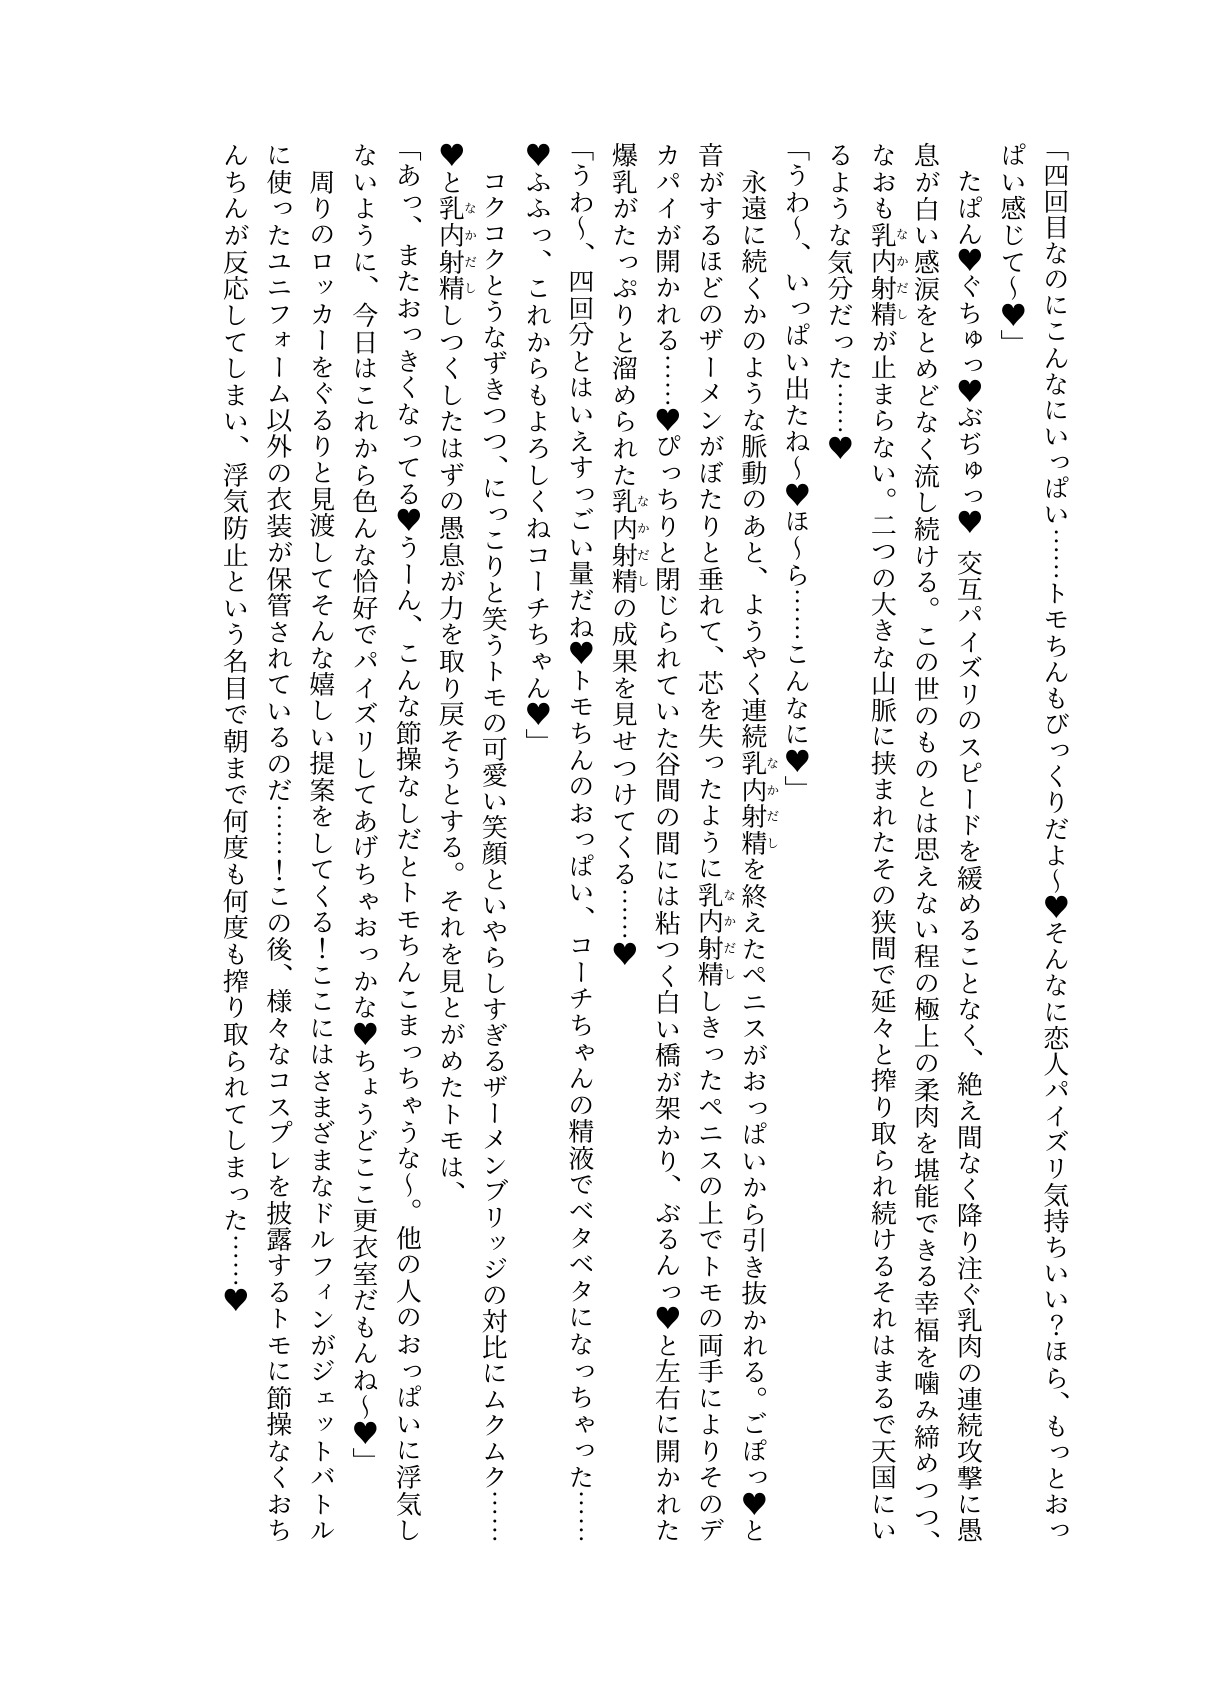 「四回目なのにこんなにいっぱい……トモちんもびっくりだよ～♥そんなに恋人パイズリ気持ちいい？ほら、もっとおっ
ぱい感じて～♥」
　たぱん♥ぐちゅっ♥ぶぢゅっ♥　交互パイズリのスピードを緩めることなく、絶え間なく降り注ぐ乳肉の連続攻撃に愚
息が白い感涙をとめどなく流し続ける。この世のものとは思えない程の極上の柔肉を堪能できる幸福を噛み締めつつ、
なおも乳内射精なかだしが止まらない。二つの大きな山脈に挟まれたその狭間で延々と搾り取られ続けるそれはまるで天国にい
るような気分だった……♥
「うわ～、いっぱい出たね～♥ほ～ら……こんなに♥」
　永遠に続くかのような脈動のあと、ようやく連続乳内射精なかだしを終えたペニスがおっぱいから引き抜かれる。ごぽっ♥と
音がするほどのザーメンがぼたりと垂れて、芯を失ったように乳内射精なかだししきったペニスの上でトモの両手によりそのデ
カパイが開かれる……♥ぴっちりと閉じられていた谷間の間には粘つく白い橋が架かり、ぶるんっ♥と左右に開かれた
爆乳がたっぷりと溜められた乳内射精なかだしの成果を見せつけてくる……♥
「うわ～、四回分とはいえすっごい量だね♥トモちんのおっぱい、コーチちゃんの精液でベタベタになっちゃった……
♥ふふっ、これからもよろしくねコーチちゃん♥」
　コクコクとうなずきつつ、にっこりと笑うトモの可愛い笑顔といやらしすぎるザーメンブリッジの対比にムクムク……
♥と乳内射精なかだししつくしたはずの愚息が力を取り戻そうとする。それを見とがめたトモは、
「あっ、またおっきくなってる♥うーん、こんな節操なしだとトモちんこまっちゃうな～。他の人のおっぱいに浮気し
ないように、今日はこれから色んな恰好でパイズリしてあげちゃおっかな♥ちょうどここ更衣室だもんね～♥」
　周りのロッカーをぐるりと見渡してそんな嬉しい提案をしてくる！ここにはさまざまなドルフィンがジェットバトル
に使ったユニフォーム以外の衣装が保管されているのだ……！この後、様々なコスプレを披露するトモに節操なくおち
んちんが反応してしまい、浮気防止という名目で朝まで何度も何度も搾り取られてしまった……♥